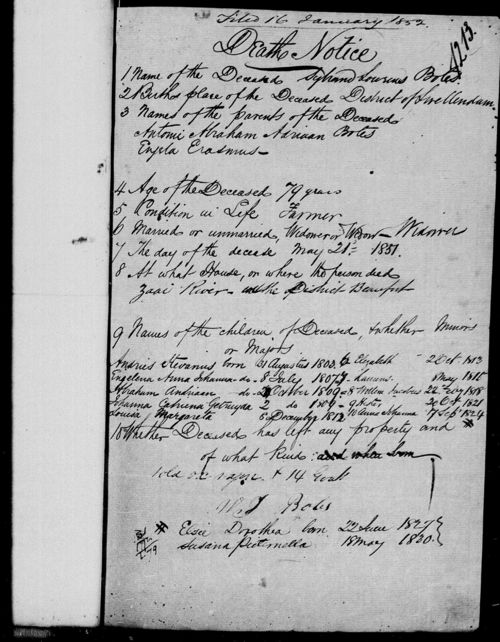 Filed 16 January 1852
4213.
Death Notice
1 Name of the Deceased Sybrand Lourens Botes
2 Births place of the Deceased District of Swellendam
3 Names of the parents of the Deceased
Antoni Abraham Adriaan Botes
Engela Erasmus
4 Age of the Deceased 79 years
5 Condition in Life Farmer
6 Married or unmarried, Widower or Widow – Widower
7 The day of the decease May 21st 1851.
8 At what House, or where the person died
Zaai River in the District Beaufort
9 Names of the children of Deceased, & whether Minors
or Majors
Andries Stevanus born Augustus 1803 6 Elizabeth 2 Oct 1813
Engelena Anna Johanna do 8 July 1807 7 Lourens 8 May 1815
Abraham Andriaan do October 1809 8 Willem Jacobus 22 1818
Catrina Getruyda 2 do 9 2 Oct 1821
Louisa Margareta 8 December 1812 10 Anna Johanna 7 Sep 1824
10 Whether Deceased has left any property and
of what kind: and where born
1 old & 14 Goats
Botes
Elsie Dorothea born 22 June 1827
Susana Pieternella 18 May 1830